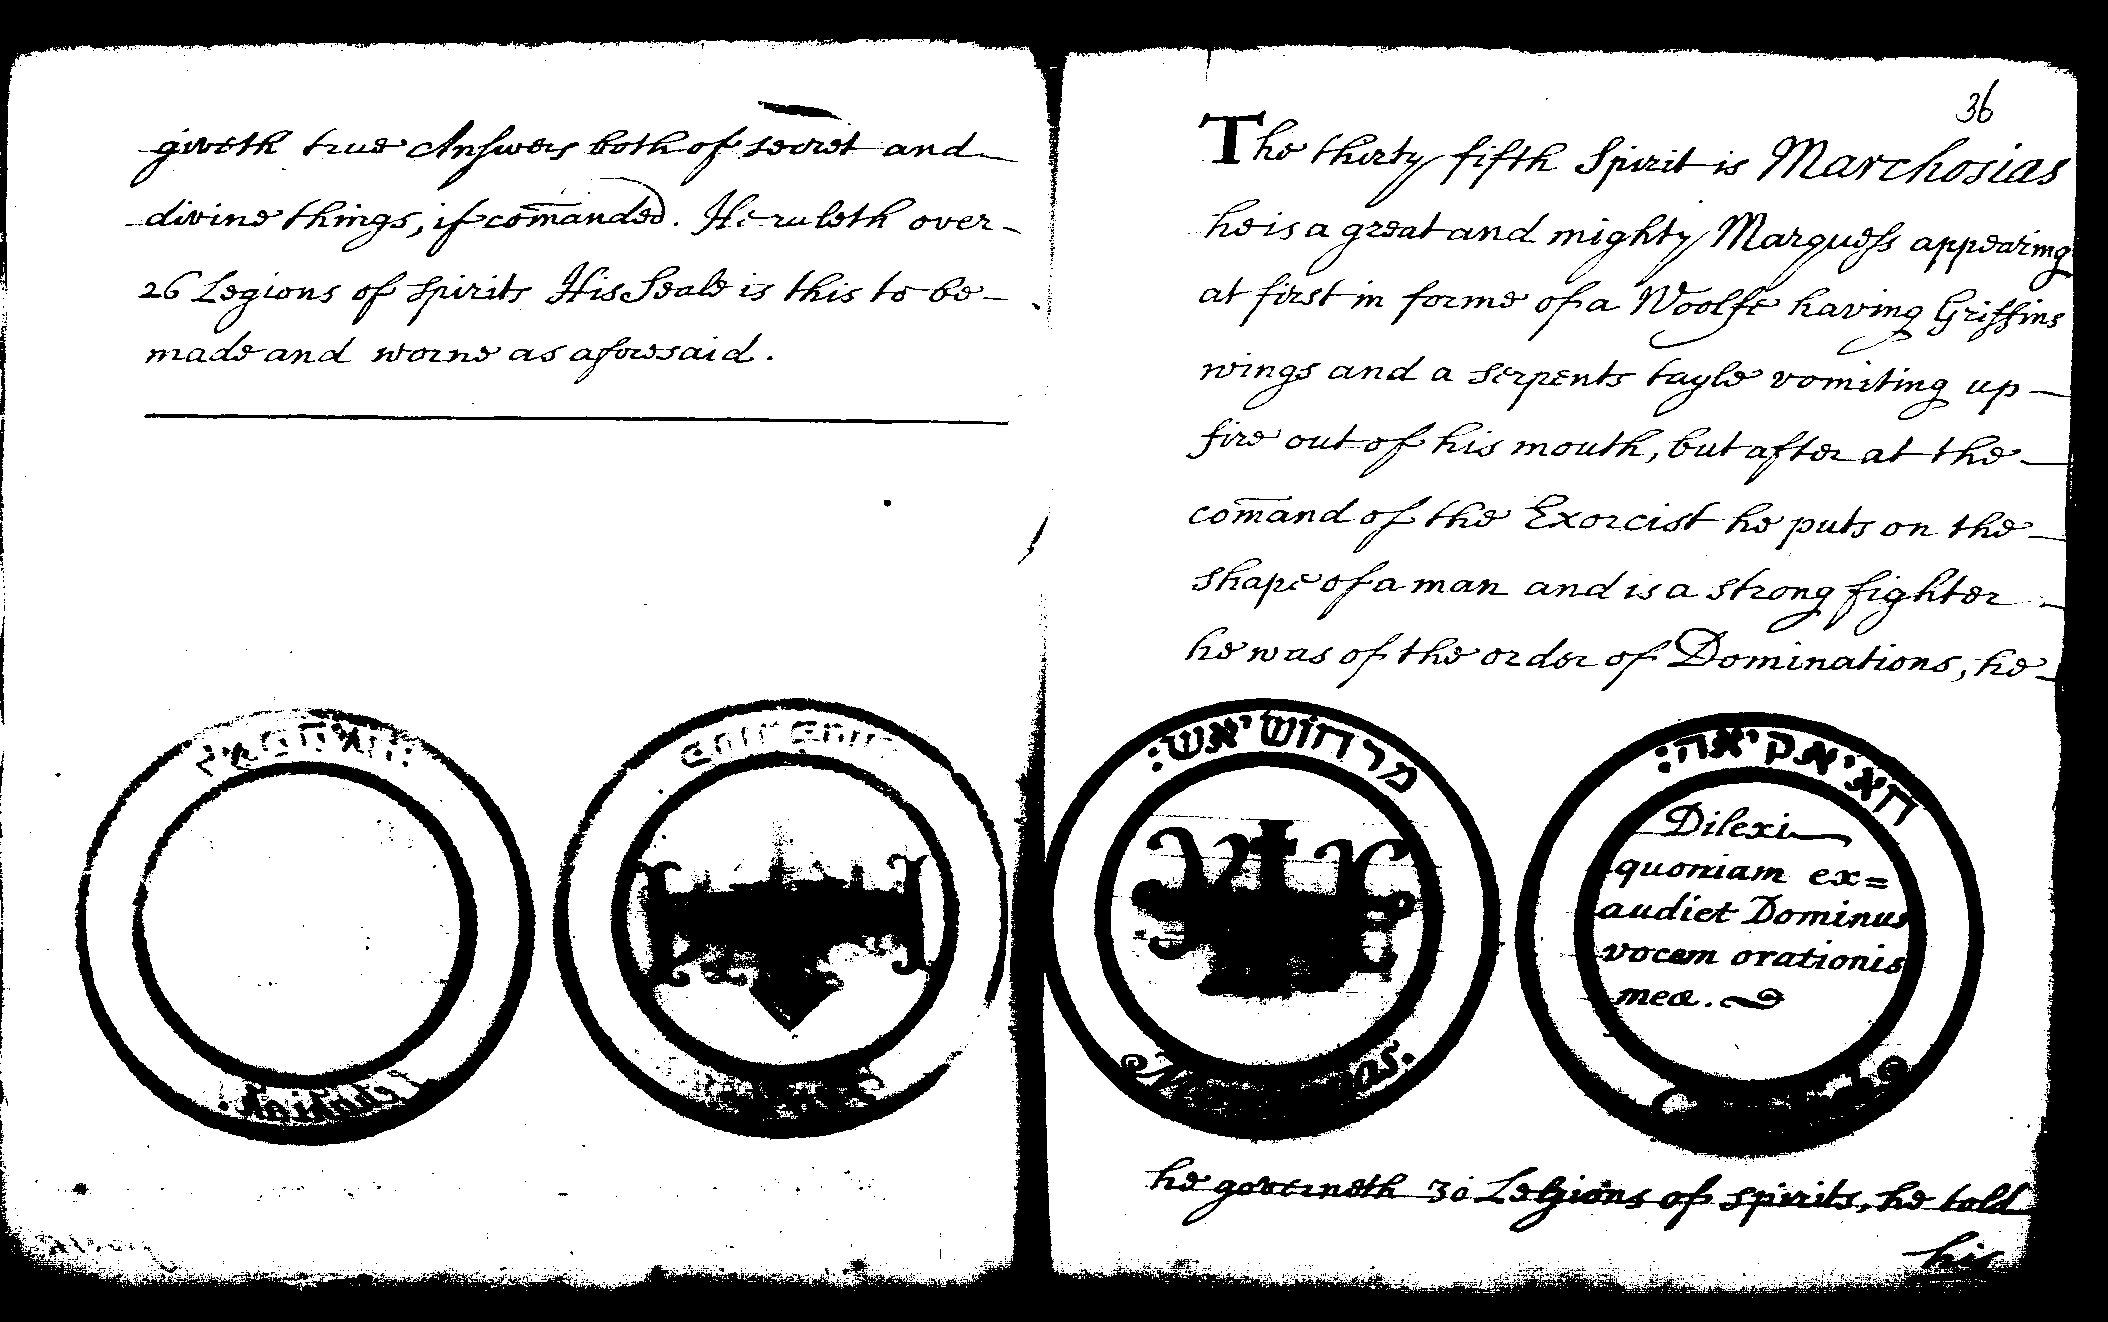 giveth true Answers both of secret and
divine things, if com̄anded. He ruleth over
26 Legions of spirits His Seale is this to be
made and worne as aforesaid.
36
The thirty fifth Spirit is Marchosias
he is a great and mighty Marquess appearing
at first in forme of a Woolfe having Griffins
wings and a serpents tayle vomiting up
fire out of his mouth, but after at the
com̄and of the Exorcist he puts on the
shape of a man and is a strong fighter
he was of the order of Dominations, he
מרחושיאש:
חאיאקיאה:
Dilexi
quoniam ex=
audiet Dominus
vocem orationis
meæ.
he governeth 30 Legions of spirits, he told
his